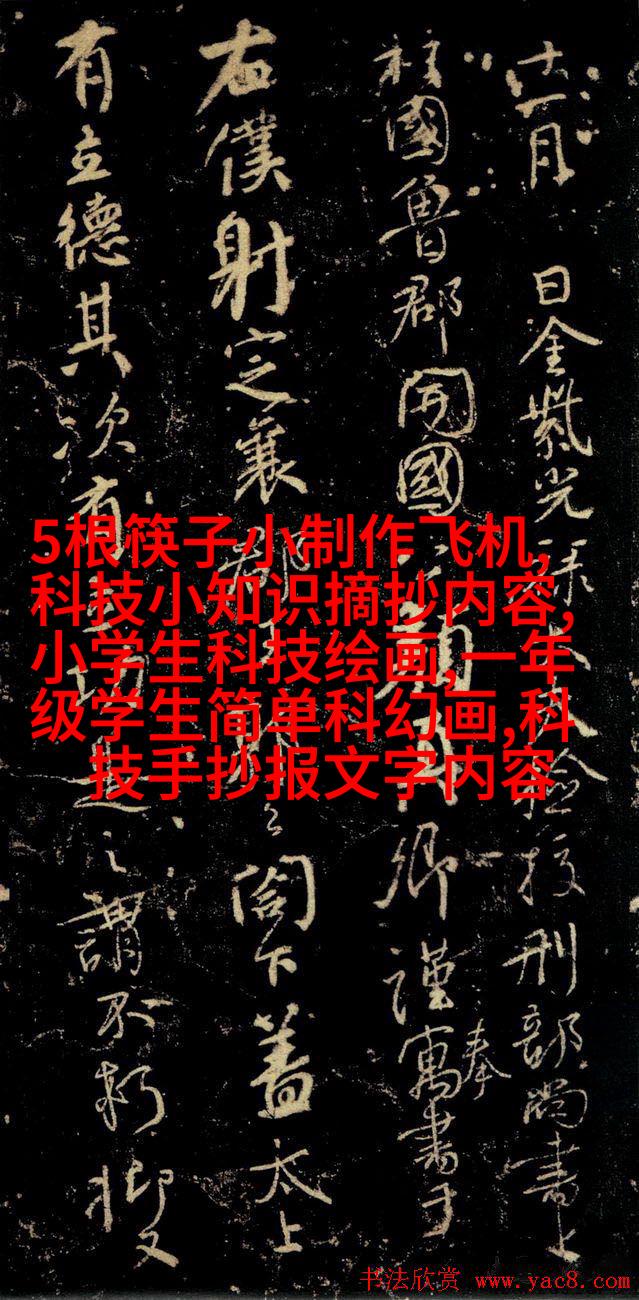 十一月 日金紫光祿大夫檢校刑部尚書上
柱國魯郡開國公顏真卿謹奉寓書于
右僕射定襄郡王郭公閤下蓋太上
有立德其次有立功是之謂不朽抑又
5根筷子小制作飞机,
科技小知识摘抄内容,
小学生科技绘画,一年
级学生简单科幻画,科
技手抄报文字内容
书法欣赏 www.yac8.com